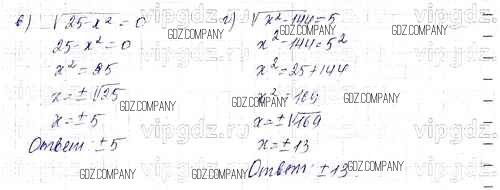 в) √25-x² = 0
25-x² = 0
x² = 25
x = ±√25
x = ±5
Ответ: ±5
г) √x²-144 = 5
x²-144 = 5²
x² = 25+144
x² = 169
x = ±√169
x = ±13
Ответ: ±13
GDZ.COMPANY
GDZ.COMPANY
GDZ.COMPANY
GDZ.COMPANY
GDZ.COMPANY
GDZ.COMPANY
GDZ.COMPANY
vipgdz.ru
vipgdz.ru
vipgdz.ru